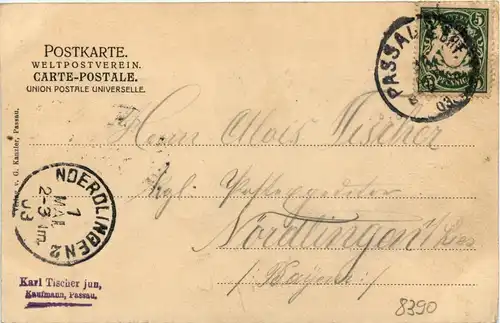 POSTKARTE.
WELTPOSTVEREIN.
CARTE-POSTALE.
UNION POSTALE UNIVERSELLE.
PASSAU
5
Herrn Alois Tischer
Kgl.
Nördlingen
(Bayern)
Verlag v. G. Kanzler, Passau.
NOERDLINGEN 2
7
MAI.
2-3 Nm.
03
Karl Tischer jun,
Kaufmann, Passau.
8390